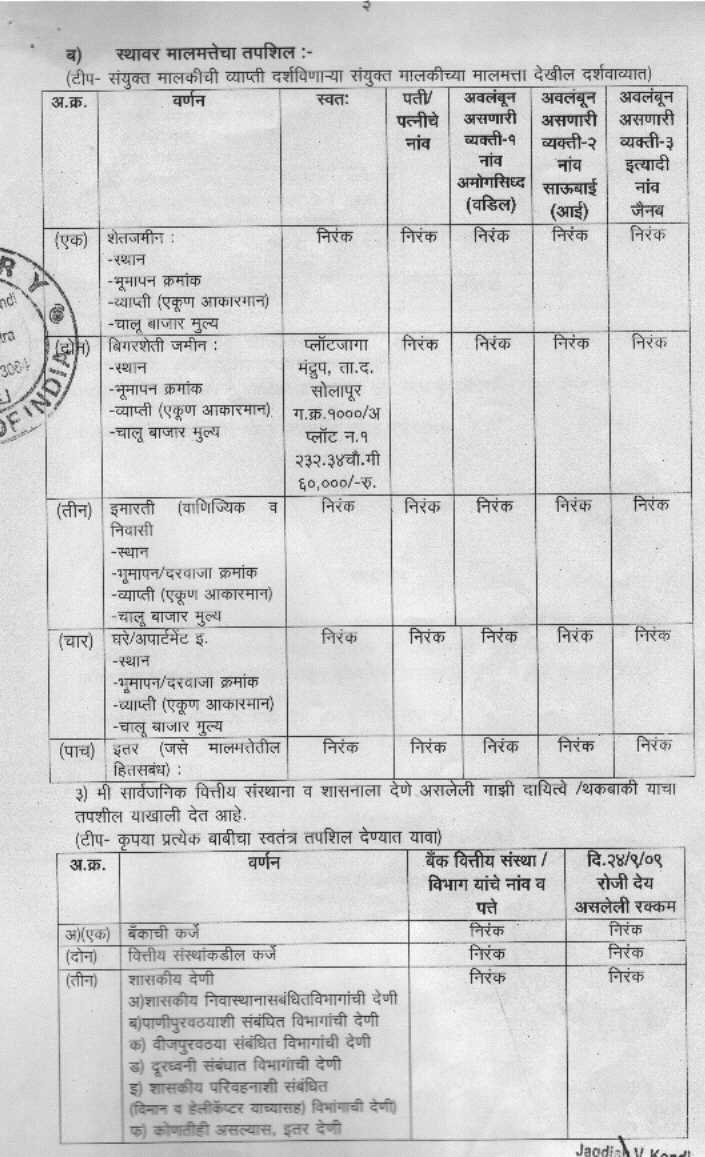 ३
ब) स्थावर मालमत्तेचा तपशिल :-
(टीप- संयुक्त मालकीची व्याप्ती दर्शविणाऱ्या संयुक्त मालकीच्या मालमत्ता देखील दर्शवाव्यात)
अ.क्र. वर्णन स्वतः पती/ पत्नीचे नांव अवलंबून असणारी व्यक्ती-१ नांव अमोगसिध्द (वडिल) अवलंबून असणारी व्यक्ती-२ नांव साऊबाई (आई) अवलंबून असणारी व्यक्ती-३ इत्यादी नांव जैनब
(एक) शेतजमीन : निरंक निरंक निरंक निरंक निरंक
-स्थान
-भूमापन क्रमांक
-व्याप्ती (एकूण आकारमान)
-चालू बाजार मुल्य
(दोन) बिगरशेती जमीन : प्लॉटजागा निरंक निरंक निरंक निरंक
-स्थान मंद्रुप, ता.द.
-भूमापन क्रमांक सोलापूर
-व्याप्ती (एकूण आकारमान) ग.क्र.१०००/अ
-चालू बाजार मुल्य प्लॉट न.१
२३२.३४चौ.मी
६०,०००/-रु.
(तीन) इमारती (वाणिज्यिक व निरंक निरंक निरंक निरंक निरंक
निवासी
-स्थान
-भूमापन/दरवाजा क्रमांक
-व्याप्ती (एकूण आकारमान)
-चालू बाजार मुल्य
(चार) घरे/अपार्टमेंट इ. निरंक निरंक निरंक निरंक निरंक
-स्थान
-भूमापन/दरवाजा क्रमांक
-व्याप्ती (एकूण आकारमान)
-चालू बाजार मुल्य
(पाच) इतर (जसे मालमत्तेतील निरंक निरंक निरंक निरंक निरंक
हितसबंध) :
३) मी सार्वजनिक वित्तीय संस्थाना व शासनाला देणे असलेली माझी दायित्वे /थकबाकी याचा
तपशील याखाली देत आहे.
(टीप- कृपया प्रत्येक बाबीचा स्वतंत्र तपशिल देण्यात यावा)
अ.क्र. वर्णन बँक वित्तीय संस्था / विभाग यांचे नांव व पत्ते दि.२४/९/०९ रोजी देय असलेली रक्कम
अ)(एक) बँकाची कर्जे निरंक निरंक
(दोन) वित्तीय संस्थांकडील कर्ज निरंक निरंक
(तीन) शासकीय देणी निरंक निरंक
अ)शासकीय निवास्थानासबंधितविभागांची देणी
ब)पाणीपुरवठयाशी संबंधित विभागांची देणी
क) वीजपुरवठया संबंधित विभागांची देणी
ड) दूरध्वनी संबंधात विभागांची देणी
इ) शासकीय परिवहनाशी संबंधित
(विमान व हेलीकॅप्टर याच्यासह) विभागाची देणी)
फ) कोणतीही असल्यास, इतर देणी
OF INDIA
Jagdish V. Kondi